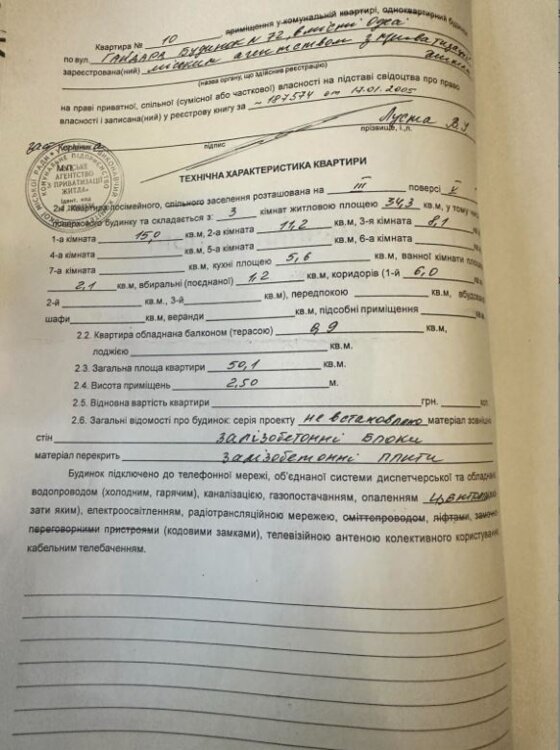 Квартира № 10 приміщення у комунальній квартирі, одноквартирний будинок
по вул. Гайдара будинок № 72, в місті Одеса
зареєстрована(ний) міським агентством з приватизації
(назва органу, що здійснив реєстрацію)
на праві приватної, спільної (сумісної або часткової) власності на підставі свідоцтва про право
власності і записана(ний) у реєстрову книгу за № 187574 от 17.01.2005
Керівник
підпис прізвище, і.,п.
МІСЬКЕ
АГЕНТСТВО
З ПРИВАТИЗАЦІЇ
ЖИТЛА
ТЕХНІЧНА ХАРАКТЕРИСТИКА КВАРТИРИ
2.1. Квартира посімейного, спільного заселення розташована на III поверсі V
поверхового будинку та складається з: 3 кімнат житловою площею 34,3 кв.м, у тому
1-а кімната 15,0 кв.м, 2-а кімната 11,2 кв.м, 3-я кімната 8,1
4-а кімната кв.м, 5-а кімната кв.м, 6-а кімната
7-а кімната кв.м, кухні площею 5,6 кв.м, ванної кімнати
2,1 кв.м, вбиральні (поєднаної) 1,2 кв.м, коридорів (1-й 6,0
2-й кв.м., 3-й кв.м), передпокою кв.м,
шафи кв.м, веранди кв.м, підсобні приміщення кв.м.
2.2. Квартира обладнана балконом (терасою) 0,9 кв.м,
лоджією кв.м.
2.3. Загальна площа квартири 50,1 кв.м.
2.4. Висота приміщень 2,50 м.
2.5. Відновна вартість квартири грн. коп.
2.6. Загальні відомості про будинок: серія проекту не встановлено матеріал
стін залізобетонні блоки
матеріал перекрить залізобетонні плити
Будинок підключено до телефонної мережі, об'єднаної системи диспетчерської та
водопроводом (холодним, гарячим), каналізацією, газопостачанням, опаленням
зати яким), електроосвітленням, радіотрансляційною мережею, сміттепроводом, ліфтами,
переговорними пристроями (кодовими замками), телевізійною антеною колективного
кабельним телебаченням.